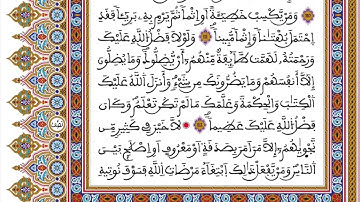 وَمَنْ يَّكْسِبْ خَطِيٓـَٔةً اَوِ اثْمًا ثُمَّ يَرْمِ بِهِۦ بَرِيٓـًٔا فَقَدِ
اِحْتَمَلَ بُهْتَٰنًا وَإِثْمًا مُّبِينًا وَلَوْلَا فَضْلُ اُ۬للَّهِ عَلَيْكَ
وَرَحْمَتُهُۥ لَهَمَّت طَّآئِفَةٌ مِّنْهُمُۥٓ أَنْ يُّضِلُّوكَ وَمَا يُضِلُّونَ
إِلَّآ أَنفُسَهُمْ وَمَا يَضُرُّونَكَ مِن شَےْءٍ وَأَنزَلَ اَ۬للَّهُ عَلَيْكَ
اَ۬لْكِتَٰبَ وَالْحِكْمَةَ وَعَلَّمَكَ مَا لَمْ تَكُن تَعْلَمُ وَكَانَ
فَضْلُ اُ۬للَّهِ عَلَيْكَ عَظِيمًا لَّا خَيْرَ فِے كَثِيرٍ مِّن
نَّجْوٜىٰهُمُۥٓ إِلَّا مَنَ اَمَرَ بِصَدَقَةٍ اَوْ مَعْرُوفٍ اَوِ اِصْلَٰحٍ بَيْنَ
اَ۬لنَّاسِ وَمَنْ يَّفْعَلْ ذَٰلِكَ اَ۪بْتِغَآءَ مَرْضَاتِ اِ۬للَّهِ فَسَوْفَ نُوتِيهِ